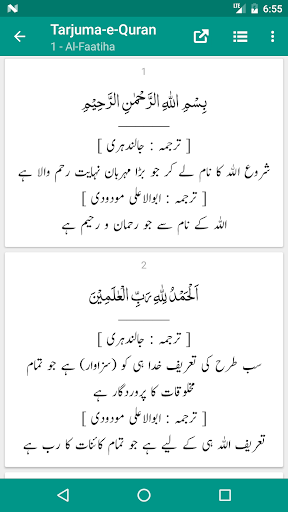 6:55
Tarjuma-e-Quran
1 - Al-Faatiha
1
بِسْمِ اللهِ الرَّحْمٰنِ الرَّحِيْمِ
[ ترجمہ : جالندہری ]
شروع الله کا نام لے کر جو بڑا مہربان نہایت رحم والا ہے
[ ترجمہ : ابوالاعلی مودودی ]
الله کے نام سے جو رحمان و رحیم ہے
2
اَلْحَمْدُ لِلّٰهِ رَبِّ الْعٰلَمِيْنَ
[ ترجمہ : جالندہری ]
سب طرح کی تعریف خدا ہی کو (سزاوار) ہے جو تمام
مخلوقات کا پروردگار ہے
[ ترجمہ : ابوالاعلی مودودی ]
تعریف الله ہی کے لیے ہے جو تمام کائنات کا رب ہے